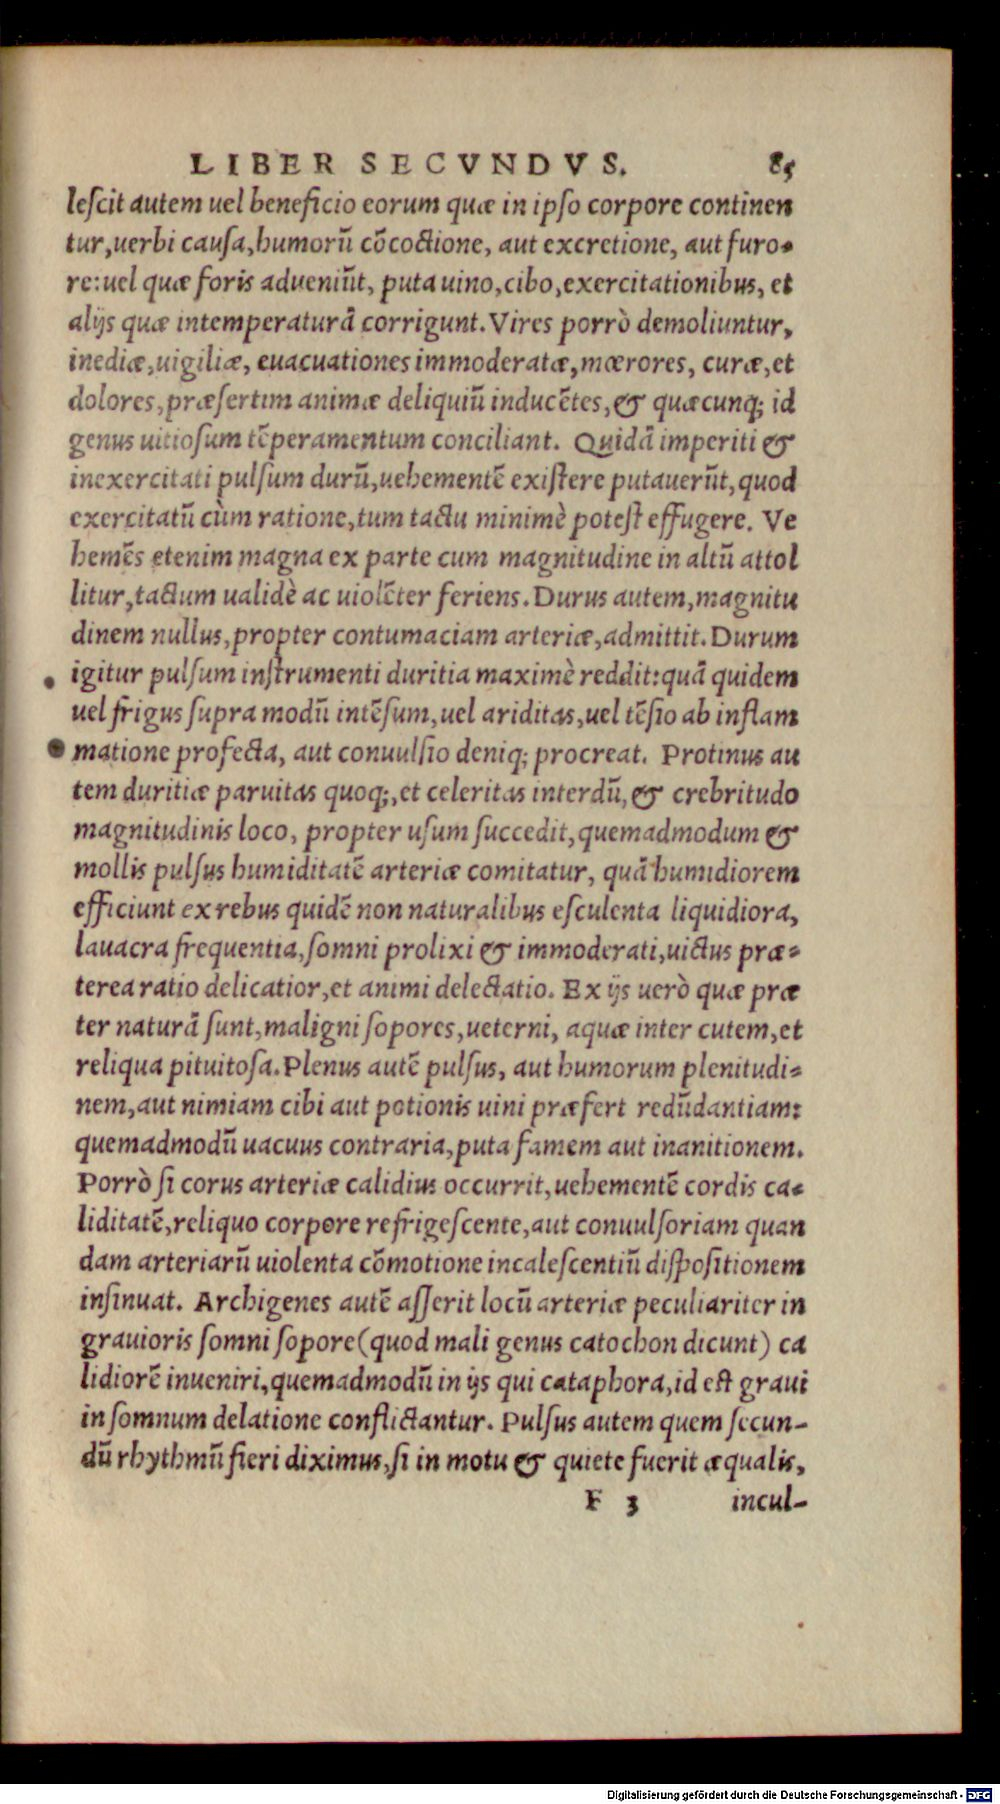 LIBER SECVNDVS. 85
leſcit autem uel beneficio eorum quæ in ipſo corpore continen
tur,uerbi cauſa,humorũ cõcoctione, aut excretione, aut furo-
re:uel quæ foris adueniũt, puta uino,cibo,exercitationibus, et
alijs quæ intemperaturã corrigunt.Vires porrò demoliuntur,
inediæ,uigiliæ, euacuationes immoderatæ,mœrores, curæ,et
dolores,præſertim animæ deliquiũ inducẽtes,& quæcunq; id
genus uitioſum tẽperamentum conciliant. Quidã imperiti &
inexercitati pulſum durũ,uehementẽ exiſtere putauerũt,quod
exercitatũ cùm ratione,tum tactu minimè poteſt effugere. Ve
hemẽs etenim magna ex parte cum magnitudine in altũ attol
litur,tactum ualidè ac uiolẽter feriens.Durus autem,magnitu
dinem nullus,propter contumaciam arteriæ,admittit.Durum
igitur pulſum inſtrumenti duritia maximè reddit:quã quidem
uel frigus ſupra modũ intẽſum,uel ariditas,uel tẽſio ab inflam
matione profecta, aut conuulſio deniq; procreat. Protinus au
tem duritiæ paruitas quoq;,et celeritas interdũ,& crebritudo
magnitudinis loco, propter uſum ſuccedit,quemadmodum &
mollis pulſus humiditatẽ arteriæ comitatur, quã humidiorem
efficiunt ex rebus quidẽ non naturalibus eſculenta liquidiora,
lauacra frequentia,ſomni prolixi & immoderati,uictus præ-
terea ratio delicatior,et animi delectatio. Ex ijs uerò quæ præ
ter naturã ſunt,maligni ſopores,ueterni, aquæ inter cutem,et
reliqua pituitoſa.Plenus autẽ pulſus, aut humorum plenitudi-
nem,aut nimiam cibi aut potionis uini præfert redũdantiam:
quemadmodũ uacuus contraria,puta famem aut inanitionem.
Porrò ſi corus arteriæ calidius occurrit,uehementẽ cordis ca-
liditatẽ,reliquo corpore refrigeſcente,aut conuulſoriam quan
dam arteriarũ uiolenta cõmotione incaleſcentiũ diſpoſitionem
inſinuat. Archigenes autẽ aſſerit locũ arteriæ peculiariter in
grauioris ſomni ſopore(quod mali genus catochon dicunt) ca
lidiorẽ inueniri,quemadmodũ in ijs qui cataphora,id eſt graui
in ſomnum delatione conflictantur. Pulſus autem quem ſecun-
dũ rhythmũ fieri diximus,ſi in motu & quiete fuerit æqualis,
F 3 incul-
Digitalisierung gefördert durch die Deutsche Forschungsgemeinschaft - DFG